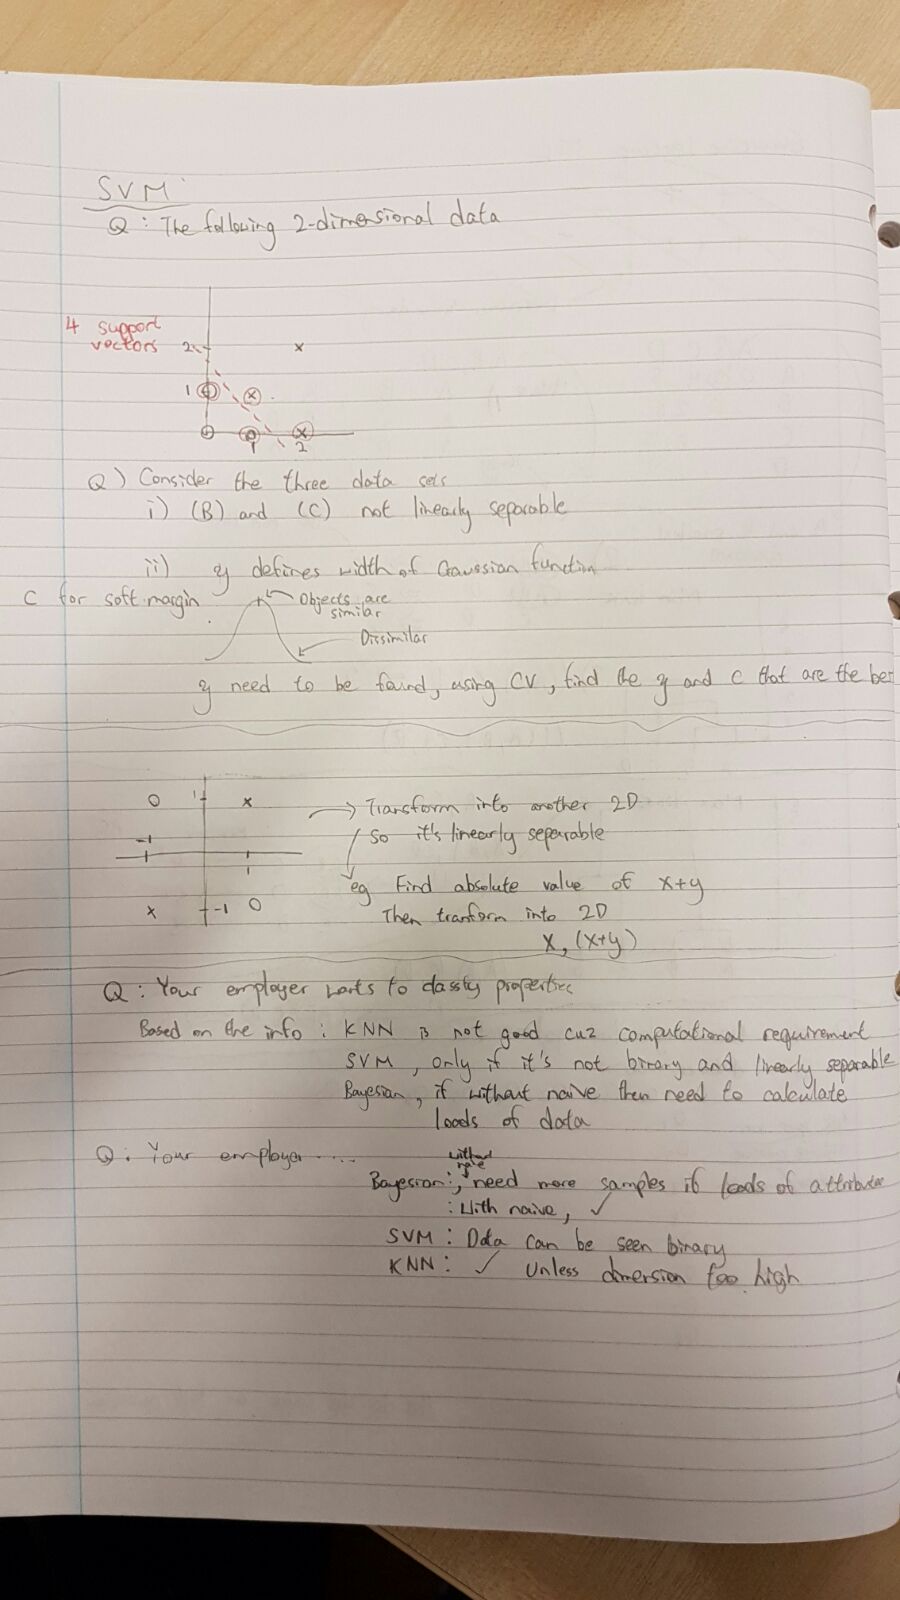 SVM
Q : The following 2-dimensional data
4 support
vectors
2
x
1
x
x
1
2
Q) Consider the three data sets
i) (B) and (C) not linearly separable
ii) γ defines width of Gaussian function
C for soft margin
Objects are
similar
Dissimilar
γ need to be found, using CV, find the γ and C that are the bes
O 1 x
-1
1
x -1 O
Transform into another 2D
So it's linearly separable
eg Find absolute value of x+y
Then tranform into 2D
x, (x+y)
Q : Your employer wants to classify properties
Based on the info : KNN is not good cuz computational requirement
SVM, only if it's not binary and linearly separable
Bayesian, if without naive then need to calculate
loads of data
Q : Your employer ....
without
naive
Bayesian :, need more samples if loads of attributes
: With naive, ✓
SVM : Data can be seen binary
KNN : ✓ Unless dimension too high